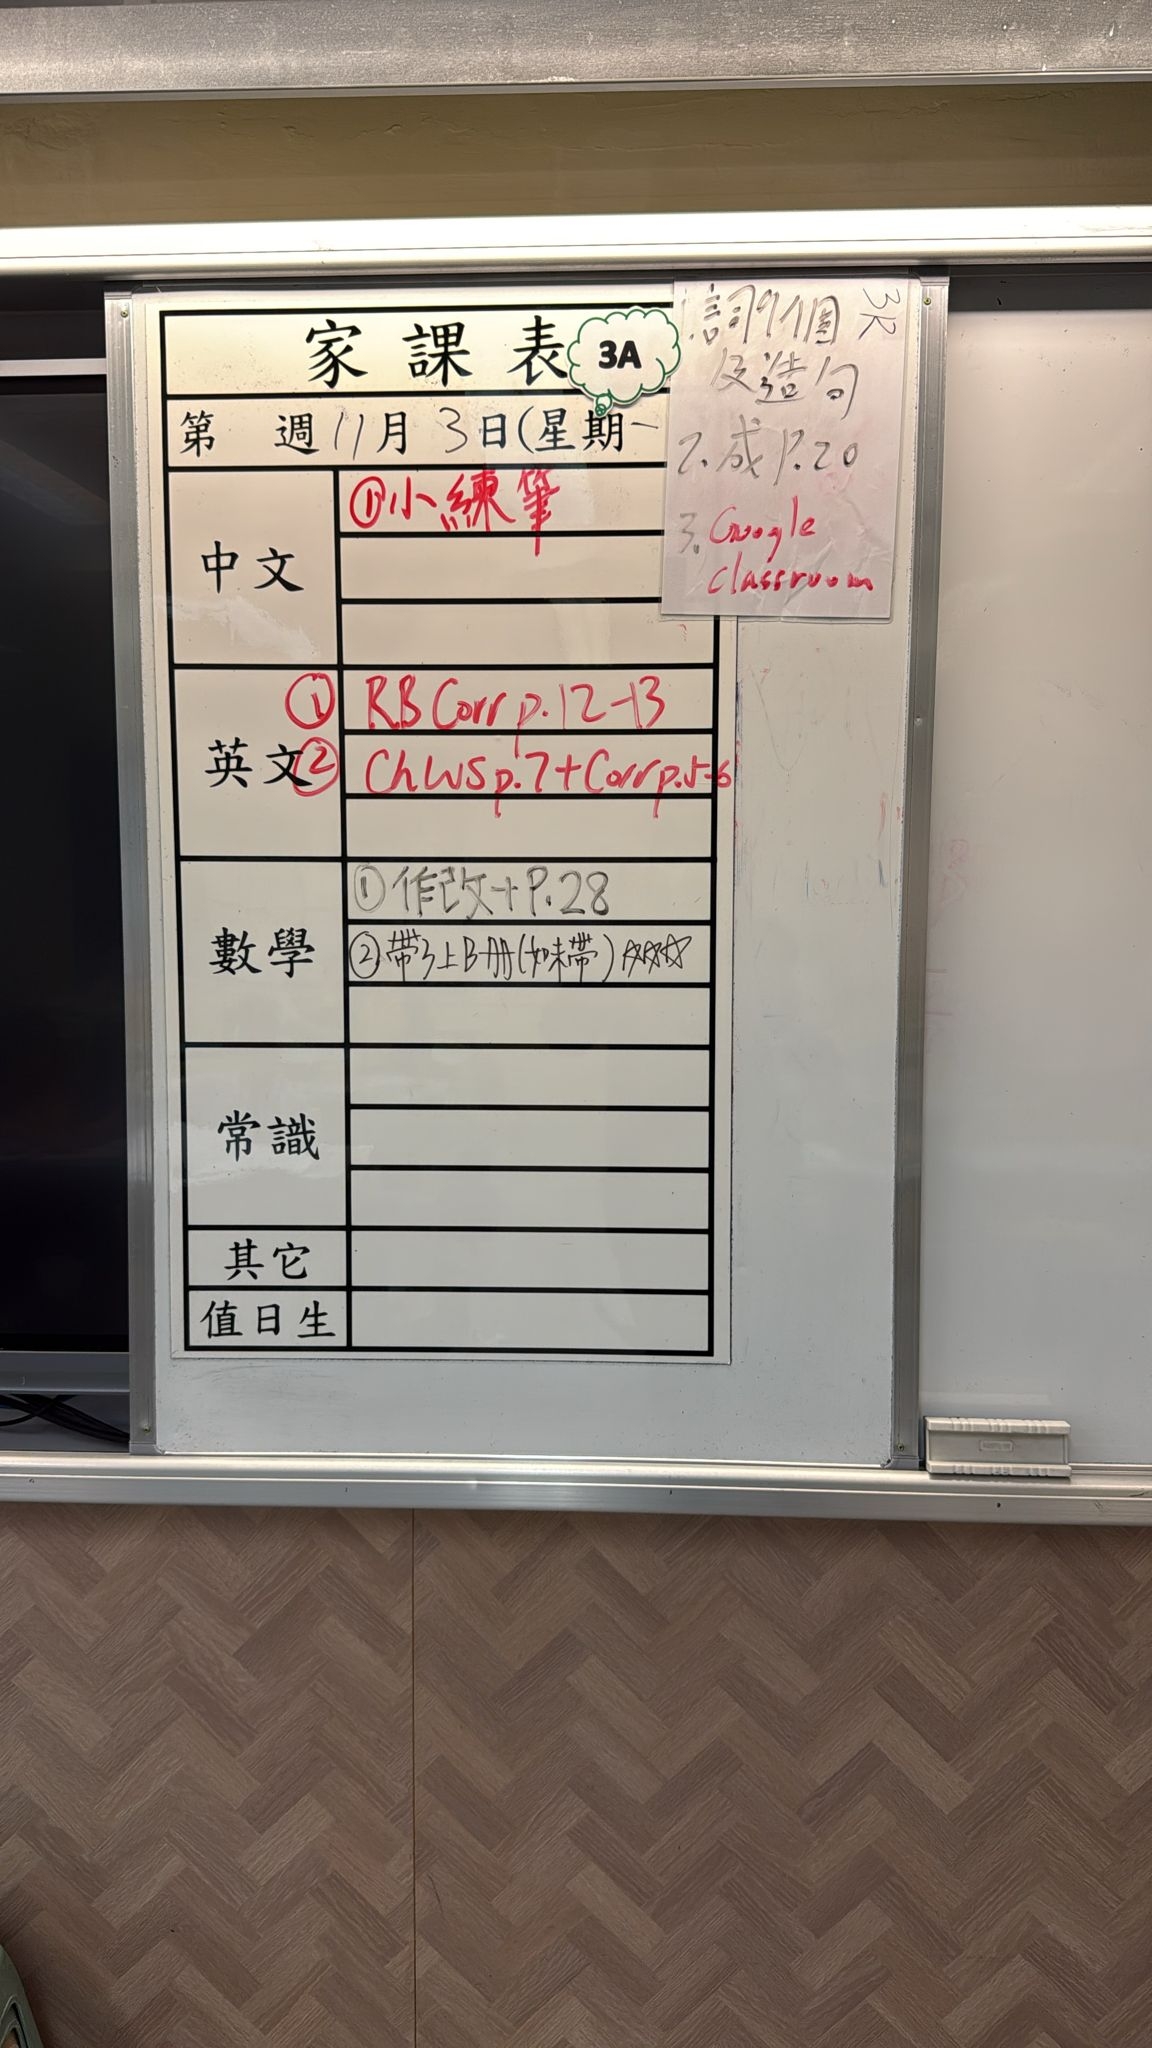 家課表
3A
第 週 11月 3日(星期一
中文
①小練筆
英文
① RB Corr p.12-13
② Ch WS p.7 + Corr p.5-6
數學
①作改+P.28
②帶3上B冊(如未帶)☆☆☆☆
常識
其它
值日生
3R
詞9個
及造句
2. 成P.20
3. Google
classroom